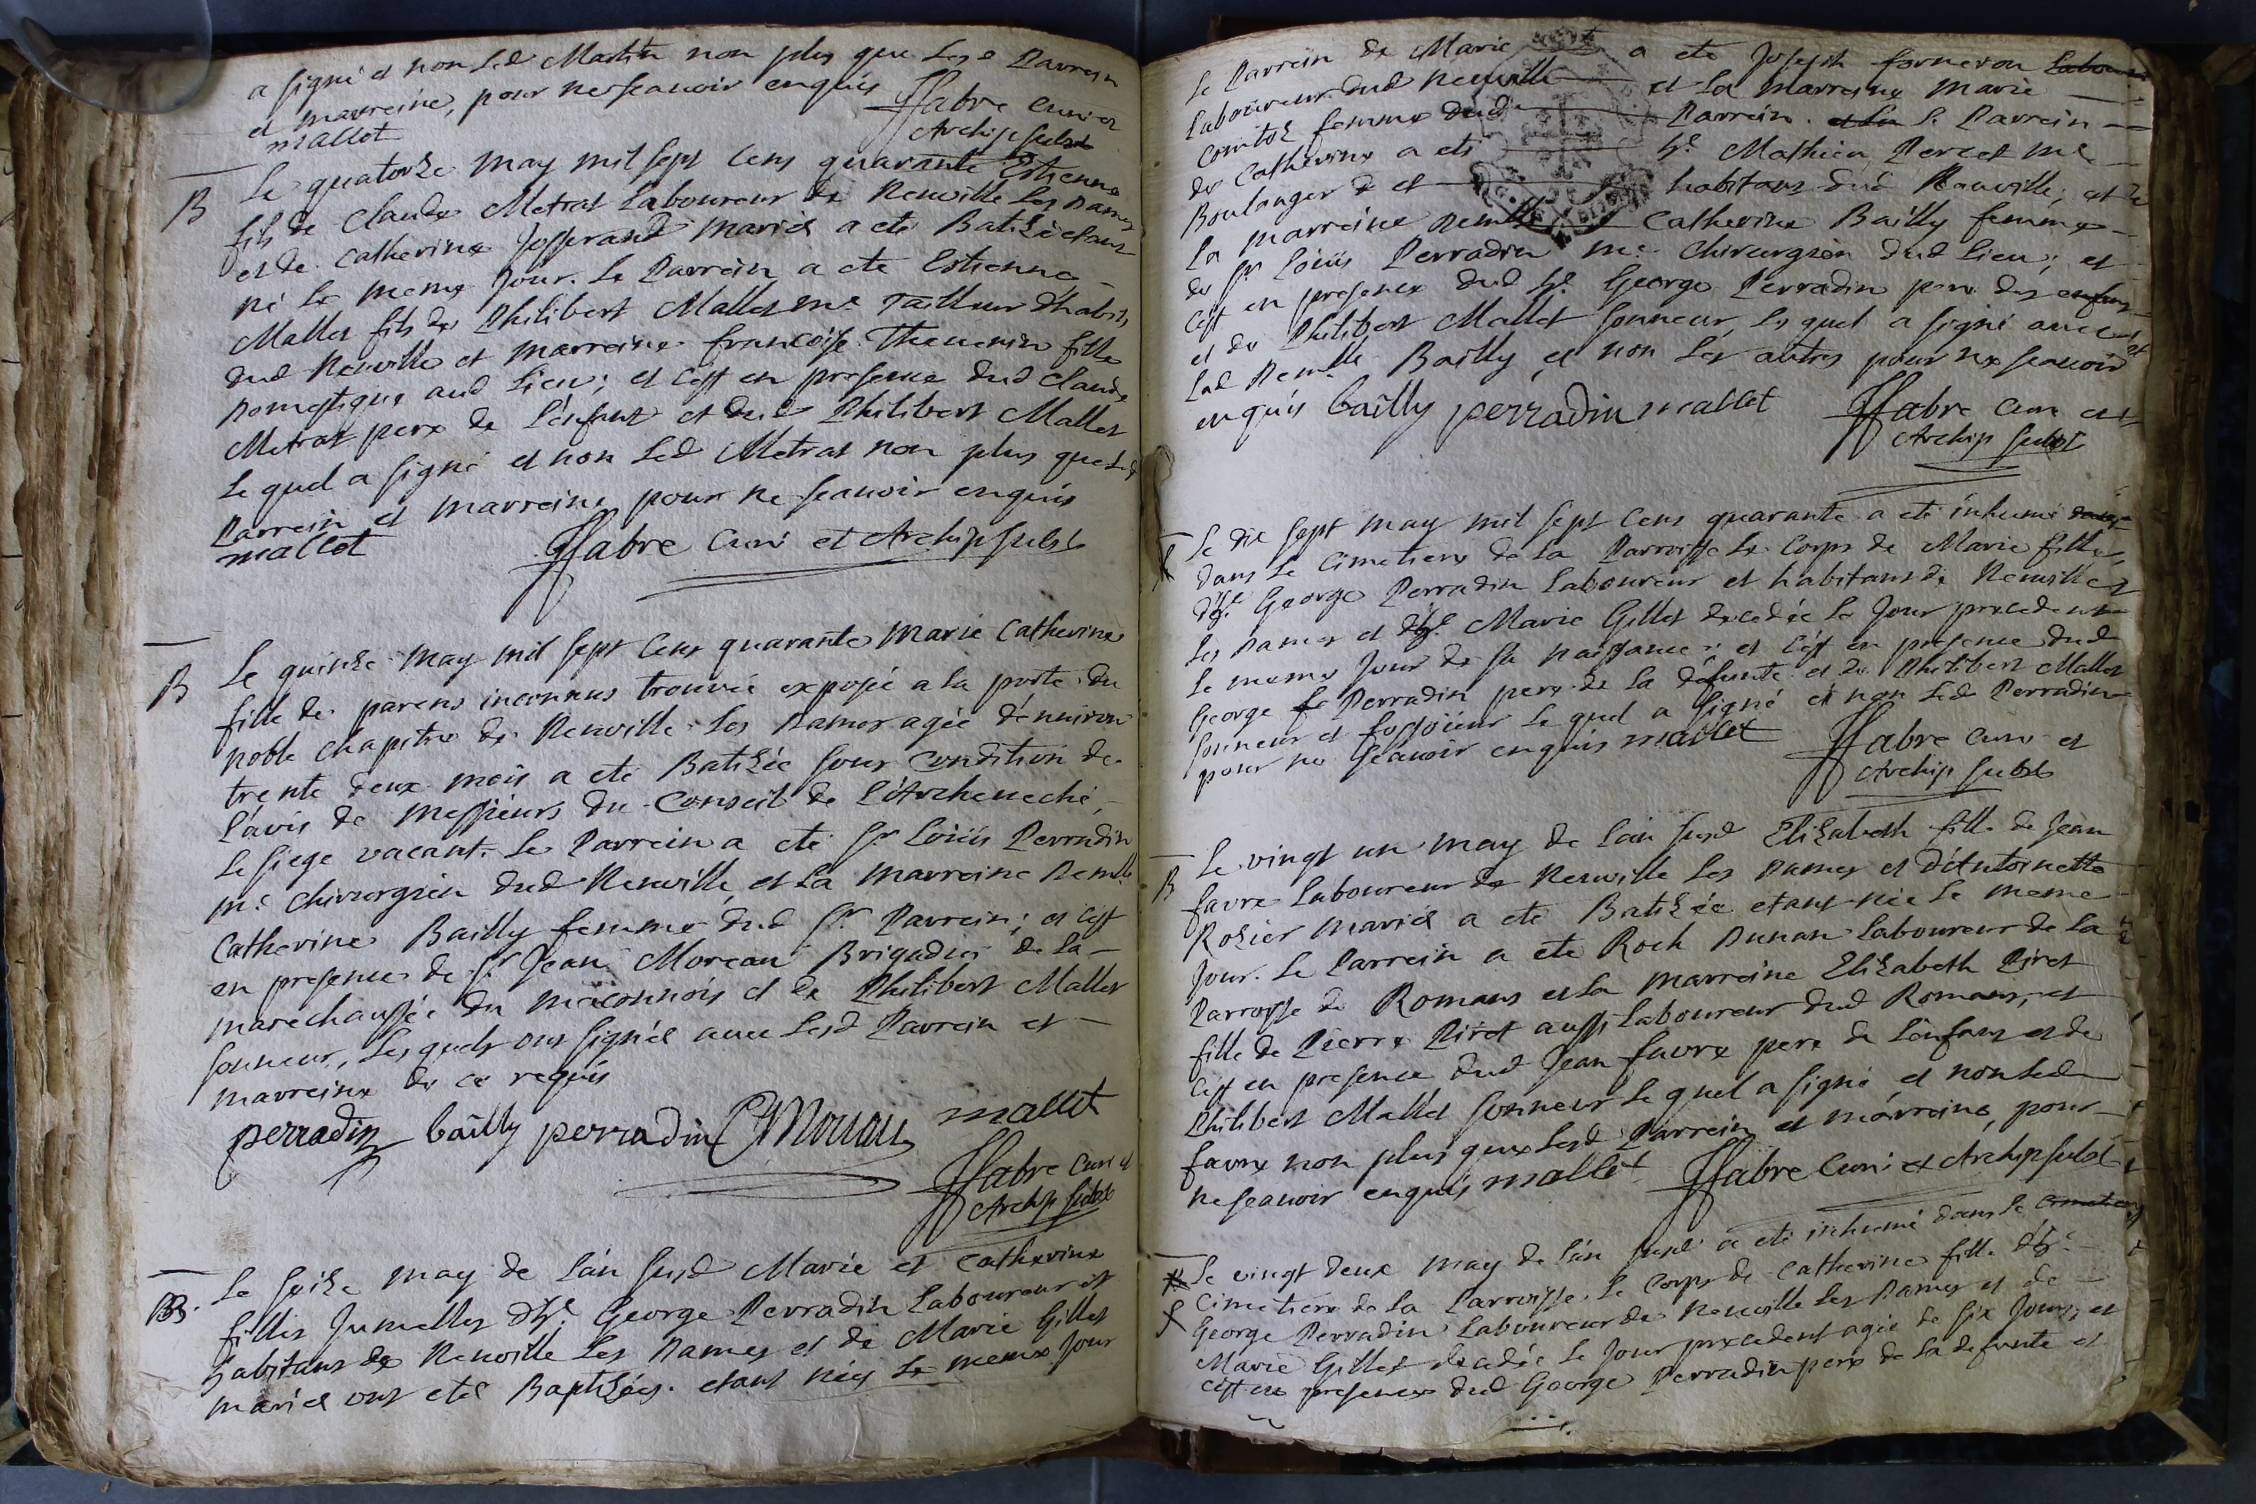 a signé et non led Martin non plus que lesd Parrein
et marreine, pour ne sçauoir enquis
mallet
ffabre curé et
Archip substs
B
Le quatorze may mil sept cens quarante Estienne
fils de Claude Metrat Laboureur de Neuville les Dames
et de Catherine Josserand mariés a eté Batizé etant
né le meme jour. Le Parrein a ete Estienne
Mallet fils de Philibert Mallet me Tailleur d'habits
dud Neuville et marreine francoise Theuenin fille
Domestique aud Lieu; et c'est en presence dud Claude
Metrat pere de l'enfant et dud Philibert Mallet
le quel a signé et non led Metrat non plus que lesd
Parrein et marreine pour ne sçauoir enquis
mallet
ffabre curé et Archip substs
B
Le quinze may mil sept cens quarante Marie Catherine
fille de parens inconnus trouvée exposée a la porte du
noble chapitre de Neuville les Dames agée d'enuiron
trente deux mois a eté Batizée sous condition de
l'avis de messieurs du Conseil de l'Archeueché,
le siege vacant. Le Parrein a eté Sr Loüis Perradin
me chirurgien dud Neuville, et la marreine Demlle
Catherine Bailly femme dud Sr Parrein; et c'est
en presence de Sr Jean Moreau Brigadier de la
marechaussée du maconnois et de Philibert Mallet
sonneur, les quels ont signés auec lesd Parrein et
marreine de ce requis
perradin bailly perradin Moreau mallet
ffabre curé et
Archip substs
BB.
Le seize may de l'an susd Marie et Catherine
filles Jumelles d'hte George Perradin Laboureur et
habitant de Neuville les Dames et de Marie Gillet
mariés ont etés Baptizées. etant nées le meme jour
Le Parrein de Marie a ete Joseph forneron Labour
Laboureur dud Neuville et la marreine Marie
Comtoz femme dud Parrein. et la S. Parrein
de Catherine a eté ht Mathieu Percet me
Boulanger et habitant dud Neuville; et de
la marreine Demlle Catherine Bailly femme
de Sr Loüis Perradin me chirurgien dud Lieu; et
c'est en presence dud ht George Perradin pere des enfans
et de Philibert Mallet sonneur, le quel a signé auec
lad Demlle Bailly et non les autres pour ne sçauoir
enquis bailly perradin mallet
ffabre curé et
Archip substs
Le dix sept may mil sept cens quarante a eté inhumé dans
dans le Cimetiere de la Parroisse le corps de Marie fille
d'hte George Perradin Laboureur et habitant de Neuville
les Dames et de Marie Gillet decedée le jour precedent
le meme jour de sa naissance; et c'est en presence dud
George Perradin pere de la defunte et de Philibert Mallet
sonneur et fossoïeur le quel a signé et non led Perradin
pour ne sçauoir enquis mallet
ffabre curé et
Archip substs
B
Le vingt un may de l'an susd Elizabeth fille de Jean
favre Laboureur de Neuville les Dames et d'Antoinette
Rozier mariés a ete Batizée etant née le meme
jour. Le Parrein a ete Roch Dunan Laboureur de la
Parroisse de Romans et la marreine Elizabeth Piret
fille de Pierre Piret aussi Laboureur dud Romans; et
c'est en presence dud Jean favre pere de l'enfant et de
Philibert Mallet sonneur le quel a signé et non led
favre non plus que lesd Parrein et marreine, pour
ne sçauoir enquis mallet
ffabre curé et Archip substs
Le vingt deux may de l'an susd a eté inhumé dans le cimetiere
Cimetiere de la Parroisse le corps de Catherine fille d'hte
George Perradin Laboureur de Neuville les Dames et de
Marie Gillet decedée le jour precedent agée de six jours, et
c'est en presence dud George Perradin pere de la defunte et